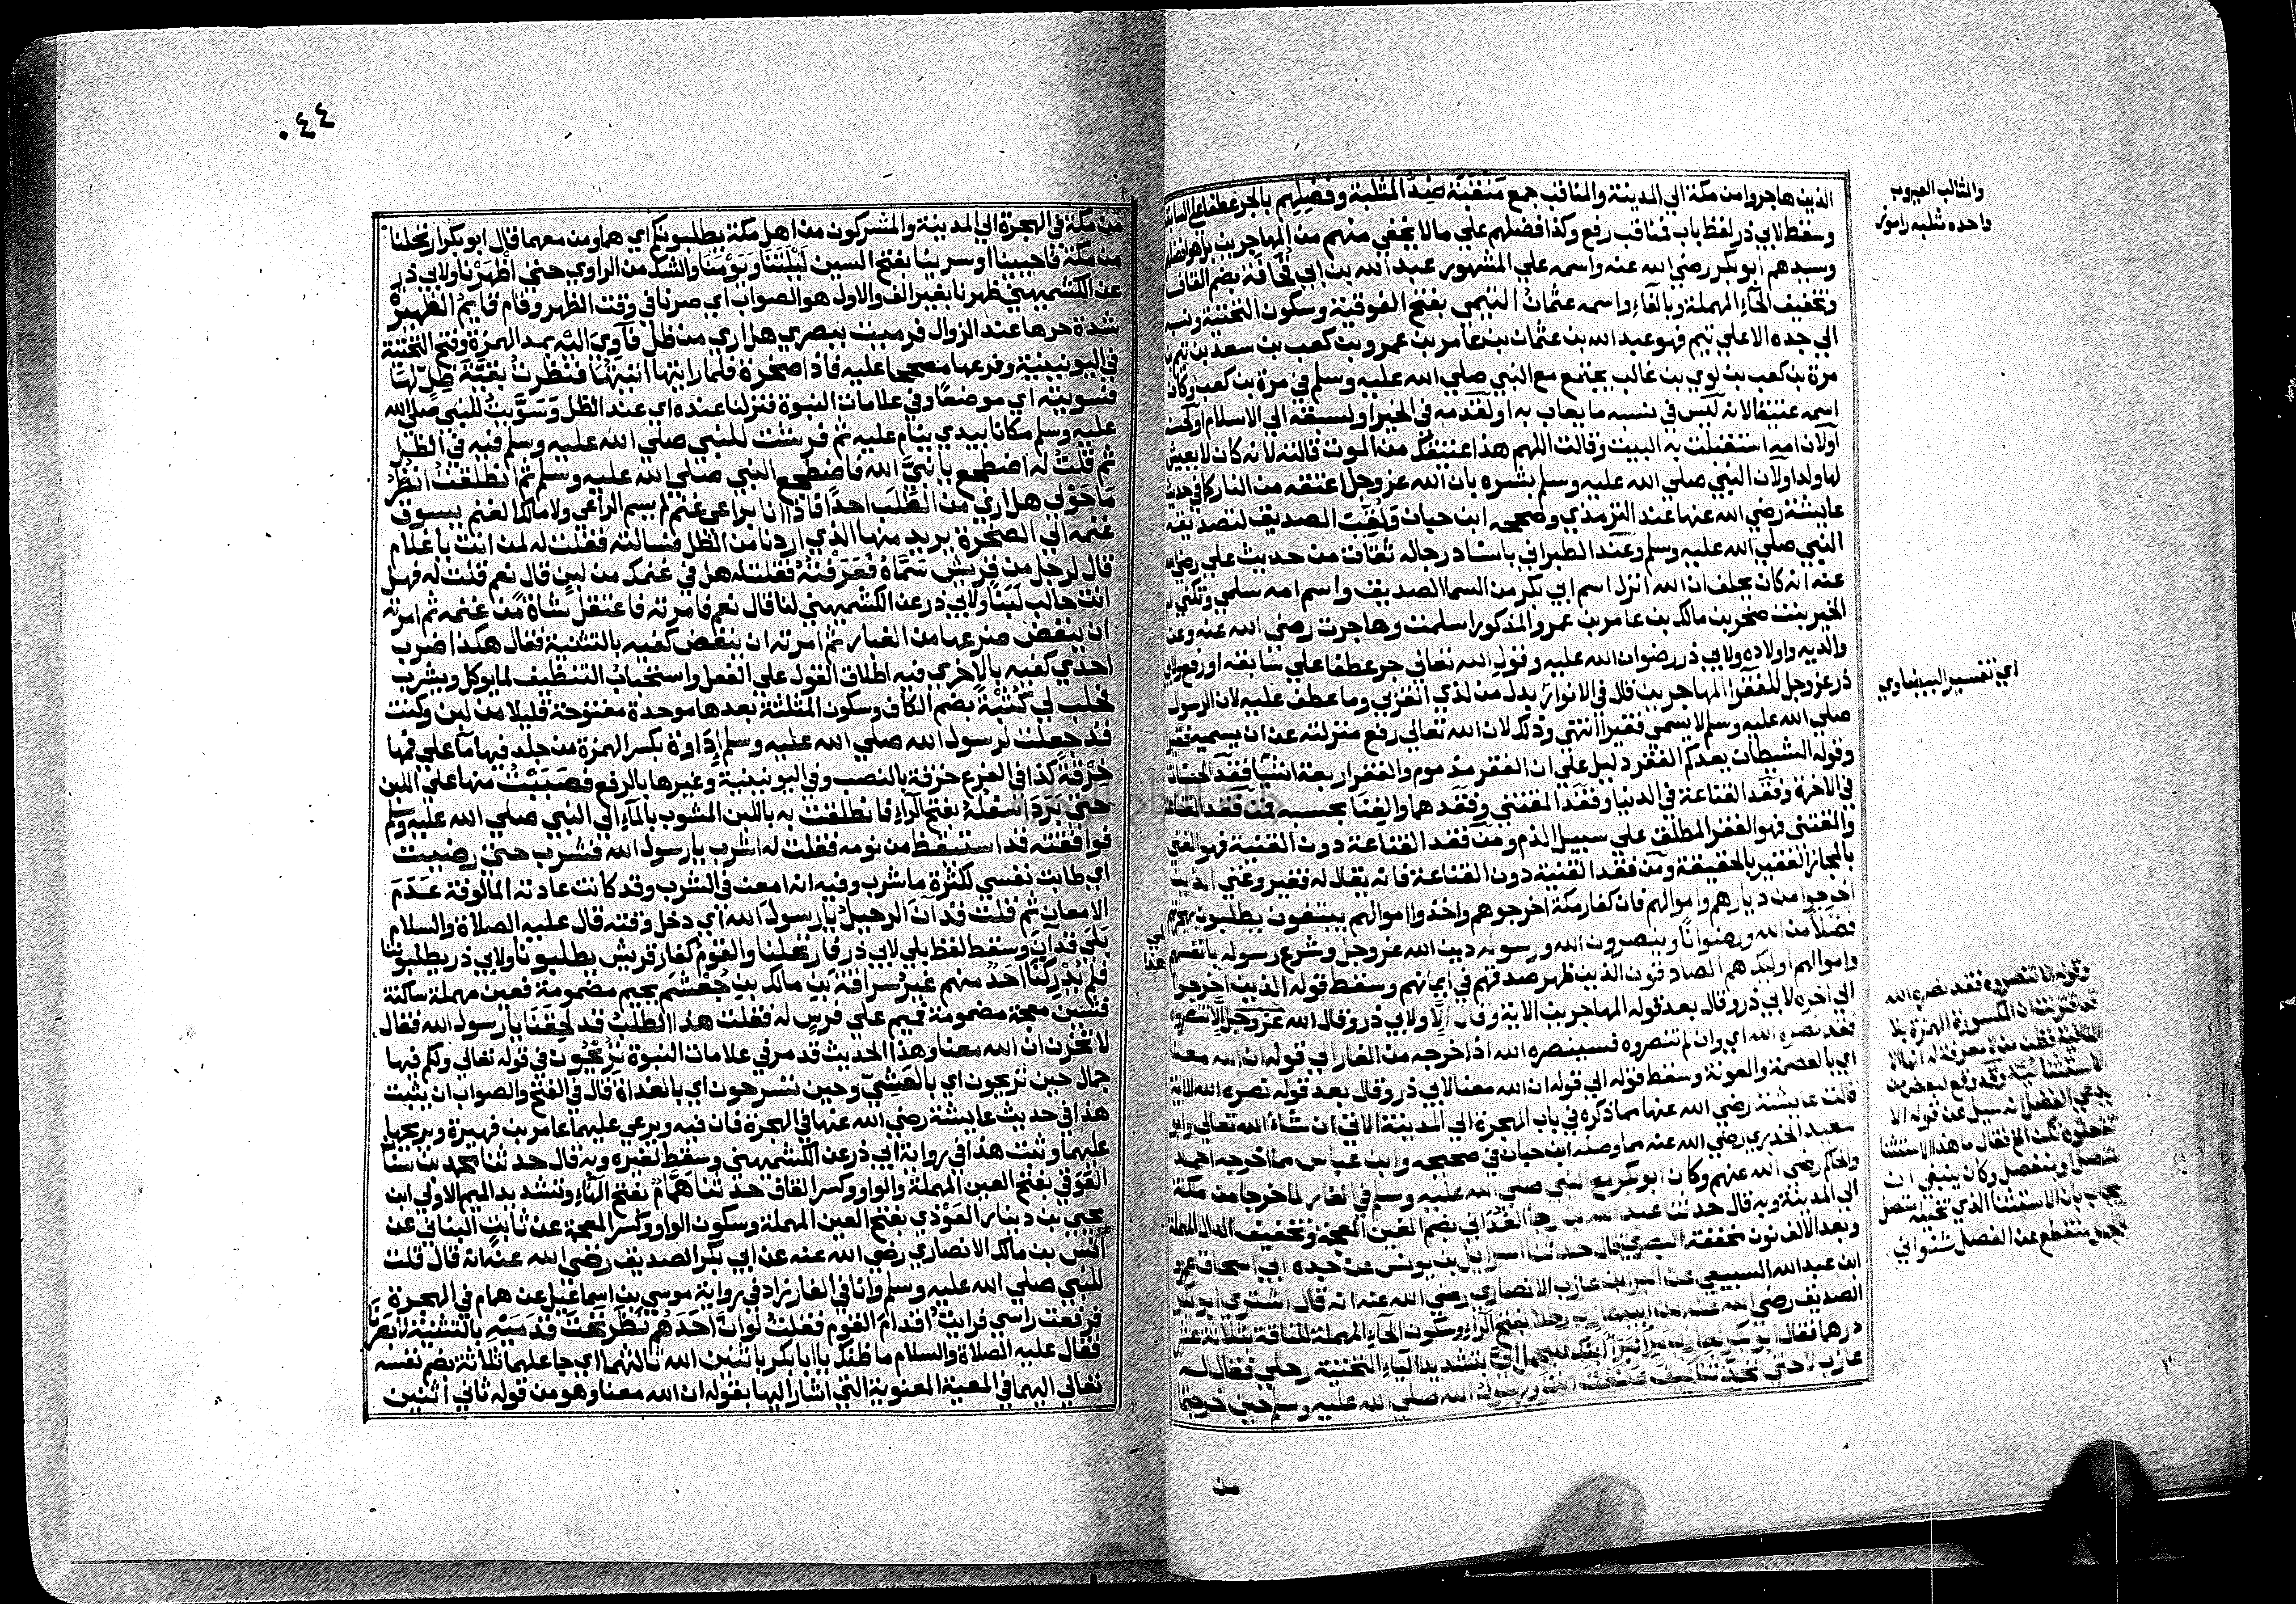 الذين هاجروا من مكة الي المدينة والمناقب جمع منقبة ضد المثلبة وفضلهم بالجر عطفا علي السابق
وسقط لابي ذر لفظ باب فمناقب رفع وكذا فضلهم علي مالا يخفي منهم من المهاجرين بل هو افضلهم
وسيدهم ابو بكر رضي الله عنه واسمه علي المشهور عبد الله بن ابي قحافة بضم القاف
وتخفيف الحاء المهملة وبالفاء واسمه عثمان التيمي بفتح الفوقية وسكون التحتية ونسبه
الي جده الاعلي تيم فهو عبد الله بن عثمان بن عامر بن عمرو بن كعب بن سعد بن تيم بن
مرة بن كعب بن لوي بن غالب يجتمع مع النبي صلي الله عليه وسلم في مرة بن كعب وكان
اسمه عتيقا لانه ليس في نسبه ما يعاب به او لقدمه في الخير او لسبقه الي الاسلام او لحسنه
اولان امه استقبلت به البيت وقالت اللهم هذا عتيقك من الموت قالته لانه كان لا يعيش
لها ولد اولان النبي صلي الله عليه وسلم بشره بان الله عز وجل اعتقه من النار كما في حديث
عايشة رضي الله عنها عند الترمذي وصححه ابن حبان ولقب الصديق لتصديقه
النبي صلي الله عليه وسلم وعند الطبراني باسناد رجاله ثقات من حديث علي رضي الله
عنه انه كان يحلف ان الله انزل اسم ابي بكر من السما الصديق واسم امه سلمي وتكني ام
الخير بنت صخر بن مالك بن عامر بن عمرو المذكور اسلمت وهاجرت رضي الله عنه وعن
والديه واولاده ولابي ذر رضوان الله عليه وقول الله تعالي جر عطفا علي سابقه او رفع ولابي
ذر عز وجل للفقرا المهاجرين قال في الانوار بدل من لذي القربي وما عطف عليه لان الرسول
صلي الله عليه وسلم لا يسمي فقيرا انتهي وذلك لان الله تعالي رفع منزلته عن ان يسميه فقير
وقوله الشيطان يعدكم الفقر دليل علي ان الفقر مذموم والفقر اربعة اشيا فقد الحسنات
في الاخرة وفقد القناعة في الدنيا وفقد المقتني وفقدهما والغنا بحسبه فمن فقد القناعة
والمقتني فهو الفقر المطلق علي سبيل الذم ومن فقد القناعة دون القنية فهو الغني
بالمجاز الفقير بالحقيقة ومن فقد القنية دون القناعة فانه يقال له فقير وغني الذين
اخرجوا من ديارهم واموالهم فان كفار مكة اخرجوهم واخذوا اموالهم يبتغون يطلبون بهجرتهم
فضلا من الله ورضوانا وينصرون الله ورسوله دين الله عز وجل وشرع رسوله بانفسهم
واموالهم اوليك هم الصادقون الذين ظهر صدقهم في ايمانهم وسقط قوله الذين اخرجوا
الي اخره لابي ذر وقال بعد قوله المهاجرين الاية وقال الا ولابي ذر وقال الله عز وجل الا تنصروه
فقد نصره الله اي وان لم تنصروه فسينصره الله اذ اخرجه من الغار الي قوله ان الله معنا
اي بالعصمة والمعونة وسقط قوله الي قوله ان الله معنا لابي ذر وقال بعد قوله نصره الله الاية
قالت عايشة رضي الله عنها مما ذكره في باب الهجرة الي المدينة الاتي ان شاء الله تعالي وابو
سعيد الخدري رضي الله عنه مما وصله ابن حبان في صحيحه وابن عباس مما اخرجه احمد
والحاكم رضي الله عنهم وكان ابو بكر مع النبي صلي الله عليه وسلم في الغار لما خرجا من مكة
الي المدينة وبه قال حدثنا عبد الله بن رجا الغداني بضم الغين المعجمة وتخفيف الدال المهملة
وبعد الالف نون مخففة البصري قال حدثنا اسرائيل بن يونس عن جده ابي اسحاق عمرو
ابن عبد الله السبيعي عن البرا بن عازب الانصاري رضي الله عنه انه قال اشتري ابو بكر
الصديق رضي الله عنه من ابيه عازب رحلا بفتح الراء وسكون الحاء المهملة للناقة بثلاثة عشر
درهما فقال ابو بكر لعازب مر البراء فليحمل الي بتشديد الياء التحتية رحلي فقال له
عازب لا حتي تحدثنا كيف صنعت انت ورسول الله صلي الله عليه وسلم حين خرجتما
من
والثالب العيوب
واحده مثلبه راموز
اي تفسير البيضاوي
وقوله الا تنصروه فقد نصره الله
٠٤٤
من مكة في الهجرة الي المدينة والمشركون من اهل مكة يطلبونكم اي هما ومن معهما قال ابو بكر ارتحلنا
من مكة فاحيينا او سرينا بفتح السين ليلتنا ويومنا والشك من الراوي حتي اظهرنا ولابي ذر
عن الكشميهني ظهرنا بغير الف والاول هو الصواب اي صرنا في وقت الظهر وقام قايم الظهيرة
شدة حرها عند الزوال فرميت ببصري هل اري من ظل فآوي اليه بمد الهمزة وفتح التحتية
في اليونينية وفرعها مصححا عليه فاذا صخرة فلما رايتها اتيتها فنظرت بقية ظل لها
فسويته اي موضعا وفي علامات النبوة فنزلنا عنده اي عند الظل وسويت للنبي صلي الله
عليه وسلم مكانا بيدي ينام عليه ثم فرشت للنبي صلي الله عليه وسلم فيه في الظل
ثم قلت له اضطجع يا نبي الله فاضطجع النبي صلي الله عليه وسلم ثم انطلقت انظر
ما حولي هل اري من الطلب احدا فاذا انا براعي غنم لم يسم الراعي ولا مالك الغنم يسوق
غنمه الي الصخرة يريد منها الذي اردنا من الظل فسالته فقلت له لمن انت يا غلام
قال لرجل من قريش سماه فعرفته فقلت له هل في غنمك من لبن قال نعم قلت له فهل
انت حالب لبنا ولابي ذر عن الكشميهني لنا قال نعم فامرته فاعتقل شاة من غنمه ثم امرته
ان ينفض ضرعها من الغبار ثم امرته ان ينفض كفيه بالتثنية فقال هكذا ضرب
احدي كفيه بالاخري فيه اطلاق القول علي الفعل واستحباب التنظيف لما يوكل ويشرب
فحلب لي كثبة بضم الكاف وسكون المثلثة بعدها موحدة مفتوحة قليلا من لبن وكنت
قد جعلت لرسول الله صلي الله عليه وسلم اداوة بكسر الهمزة من جلد فيها ما علي فمها
خرقة كذا في الفرع خرقة بالنصب وفي اليونينية وغيرها بالرفع فصببت منها علي اللبن
حتي برد اسفله بفتح الراء فانطلقت به باللبن المشوب بالماء الي النبي صلي الله عليه وسلم
فوافقته قد استيقظ من نومه فقلت له اشرب يا رسول الله فشرب حتي رضيت
اي طابت نفسي لكثرة ما شرب وفيه انه امعن في الشرب وقد كانت عادته المالوفة عدم
الامعان ثم قلت قد آن الرحيل يا رسول الله اي دخل وقته قال عليه الصلاة والسلام
بلي قد آن وسقط لفظ بلي لابي ذر فارتحلنا والقوم كفار قريش يطلبونا ولابي ذر يطلبوننا
فلم يدركنا احد منهم غير سراقة بن مالك بن جعشم بجيم مضمومة فعين مهملة ساكنة
فشين معجمة مضمومة فميم علي فرس له فقلت هذا الطلب قد لحقنا يا رسول الله فقال
لا تحزن ان الله معنا وهذا الحديث قد مر في علامات النبوة تريحون في قوله تعالي ولكم فيها
جمال حين تريحون اي بالعشي وحين تسرحون اي بالغداة قال في الفتح والصواب ان يثبت
هذا في حديث عايشة رضي الله عنها في الهجرة فان فيه ويرعي عليهما عامر بن فهيرة ويريحها
عليهما وثبت هذا في رواية ابي ذر عن الكشميهني وسقط لغيره وبه قال حدثنا محمد بن سنان
العوقي بفتح العين المهملة والواو وكسر القاف حدثنا همام بفتح الهاء وتشديد الميم الاولي ابن
يحيي بن دينار العوذي بفتح العين المهملة وسكون الواو وكسر المعجمة عن ثابت البناني عن
انس بن مالك الانصاري رضي الله عنه عن ابي بكر الصديق رضي الله عنه انه قال قلت
للنبي صلي الله عليه وسلم وانا في الغار زاد في رواية موسي بن اسماعيل عن همام في الهجرة
فرفعت راسي فرايت اقدام القوم فقلت لو ان احدهم نظر تحت قدميه بالتثنية لابصرنا
فقال عليه الصلاة والسلام ما ظنك يا ابا بكر باثنين الله ثالثهما اي جاعلهما ثلاثة بضم نفسه
تعالي اليهما في المعية المعنوية التي اشار اليها بقوله ان الله معنا وهو من قوله ثاني اثنين